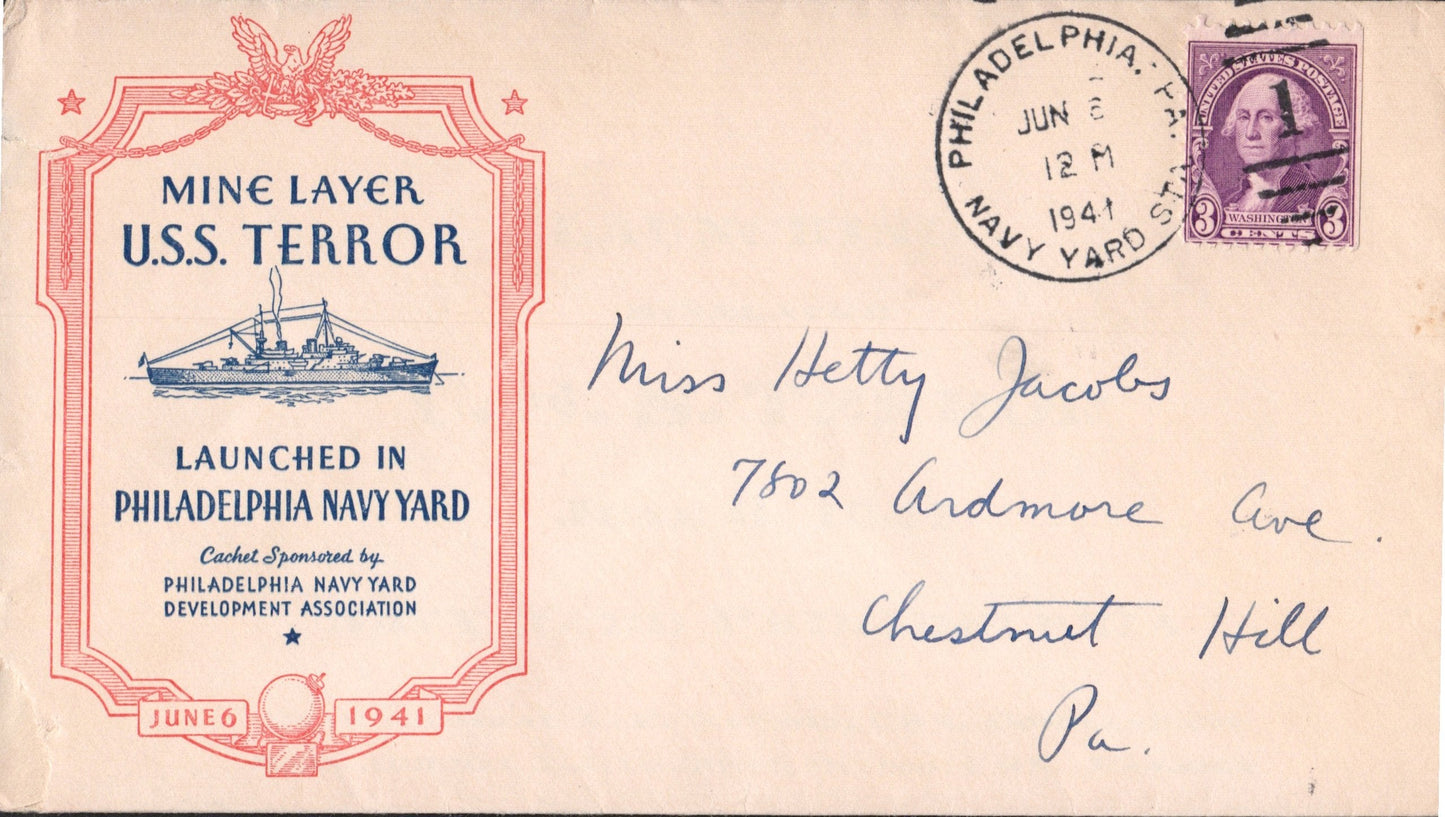 MINE LAYER
U.S.S. TERROR
LAUNCHED IN
PHILADELPHIA NAVY YARD
Cachet Sponsored by
PHILADELPHIA NAVY YARD
DEVELOPMENT ASSOCIATION
JUNE 6 1941
PHILADELPHIA, PA.
NAVY YARD STA.
JUN 6
12 M
1941
UNITED STATES POSTAGE
1
3 WASHINGTON 3
CENTS
Miss Hetty Jacobs
7802 Ardmore Ave.
Chestnut Hill
Pa.